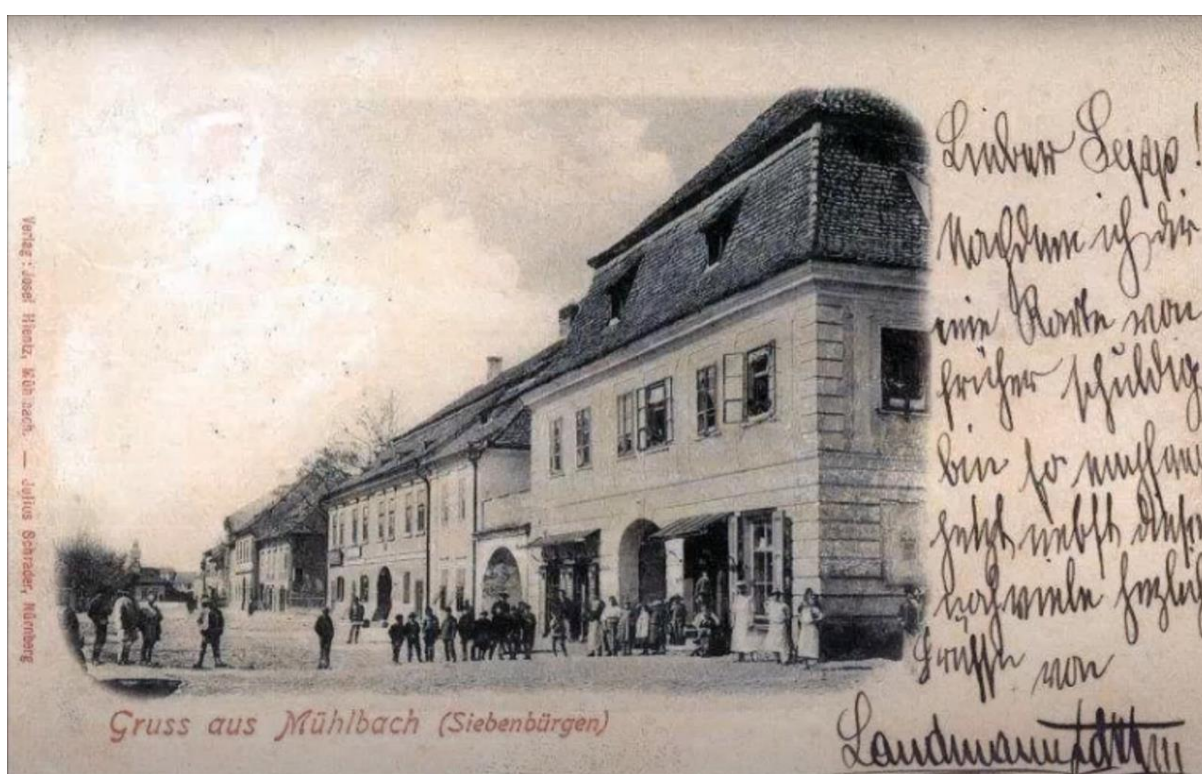 Verlag: Josef Hientz, Mühlbach. — Julius Schrader, Nürnberg
Gruss aus Mühlbach (Siebenbürgen)
Lieber Sepp!
Nachdem ich dir
eine Karte von
früher schuldig
bin so
jetzt nebst
noch viele
Grüße von
Landmann